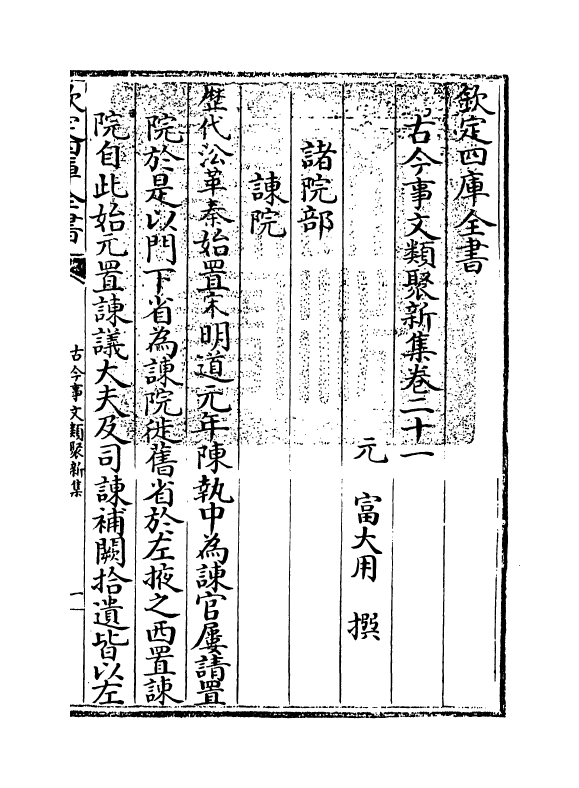 欽定四庫全書
古今事文類聚新集卷二十一
元 富大用 撰
諸院部
諫院
歴代沿革秦始置宋明道元年陳執中為諫官屢請置
院於是以門下省為諫院徙舊省於左掖之西置諫
院自此始元置諫議大夫及司諫補闕拾遺皆以左
欽定四庫全書
古今事文類聚新集
一